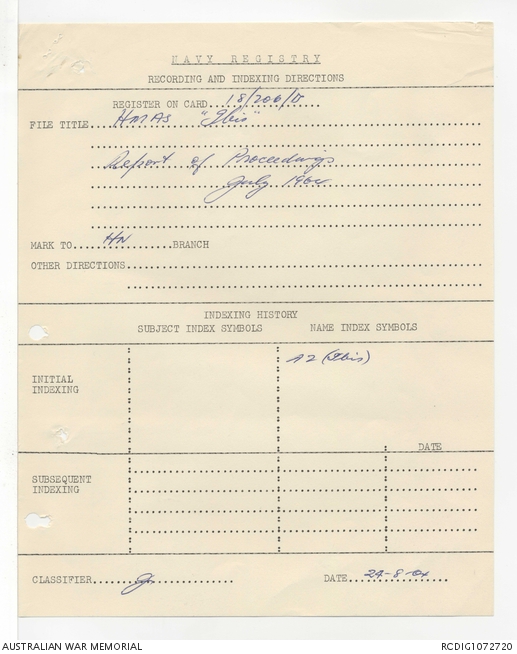 NAVY REGISTRY
RECORDING AND INDEXING DIRECTIONS
REGISTER ON CARD 18/206/D
FILE TITLE HMAS "Ibis"
Report of Proceedings
July 1964
MARK TO HN BRANCH
OTHER DIRECTIONS
INDEXING HISTORY
SUBJECT INDEX SYMBOLS NAME INDEX SYMBOLS
A2 (Ibis)
INITIAL
INDEXING
DATE
SUBSEQUENT
INDEXING
CLASSIFIER DATE 24-8-64
AUSTRALIAN WAR MEMORIAL RCDIG1072720